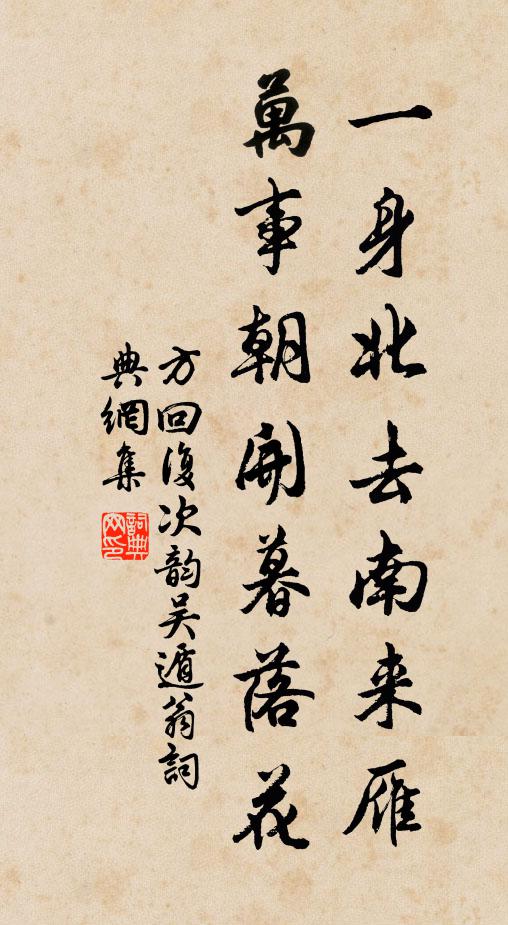 一身北去南来雁
萬事朝開暮落花
方回復次韵吴遁翁詞
典網集
詞典網印